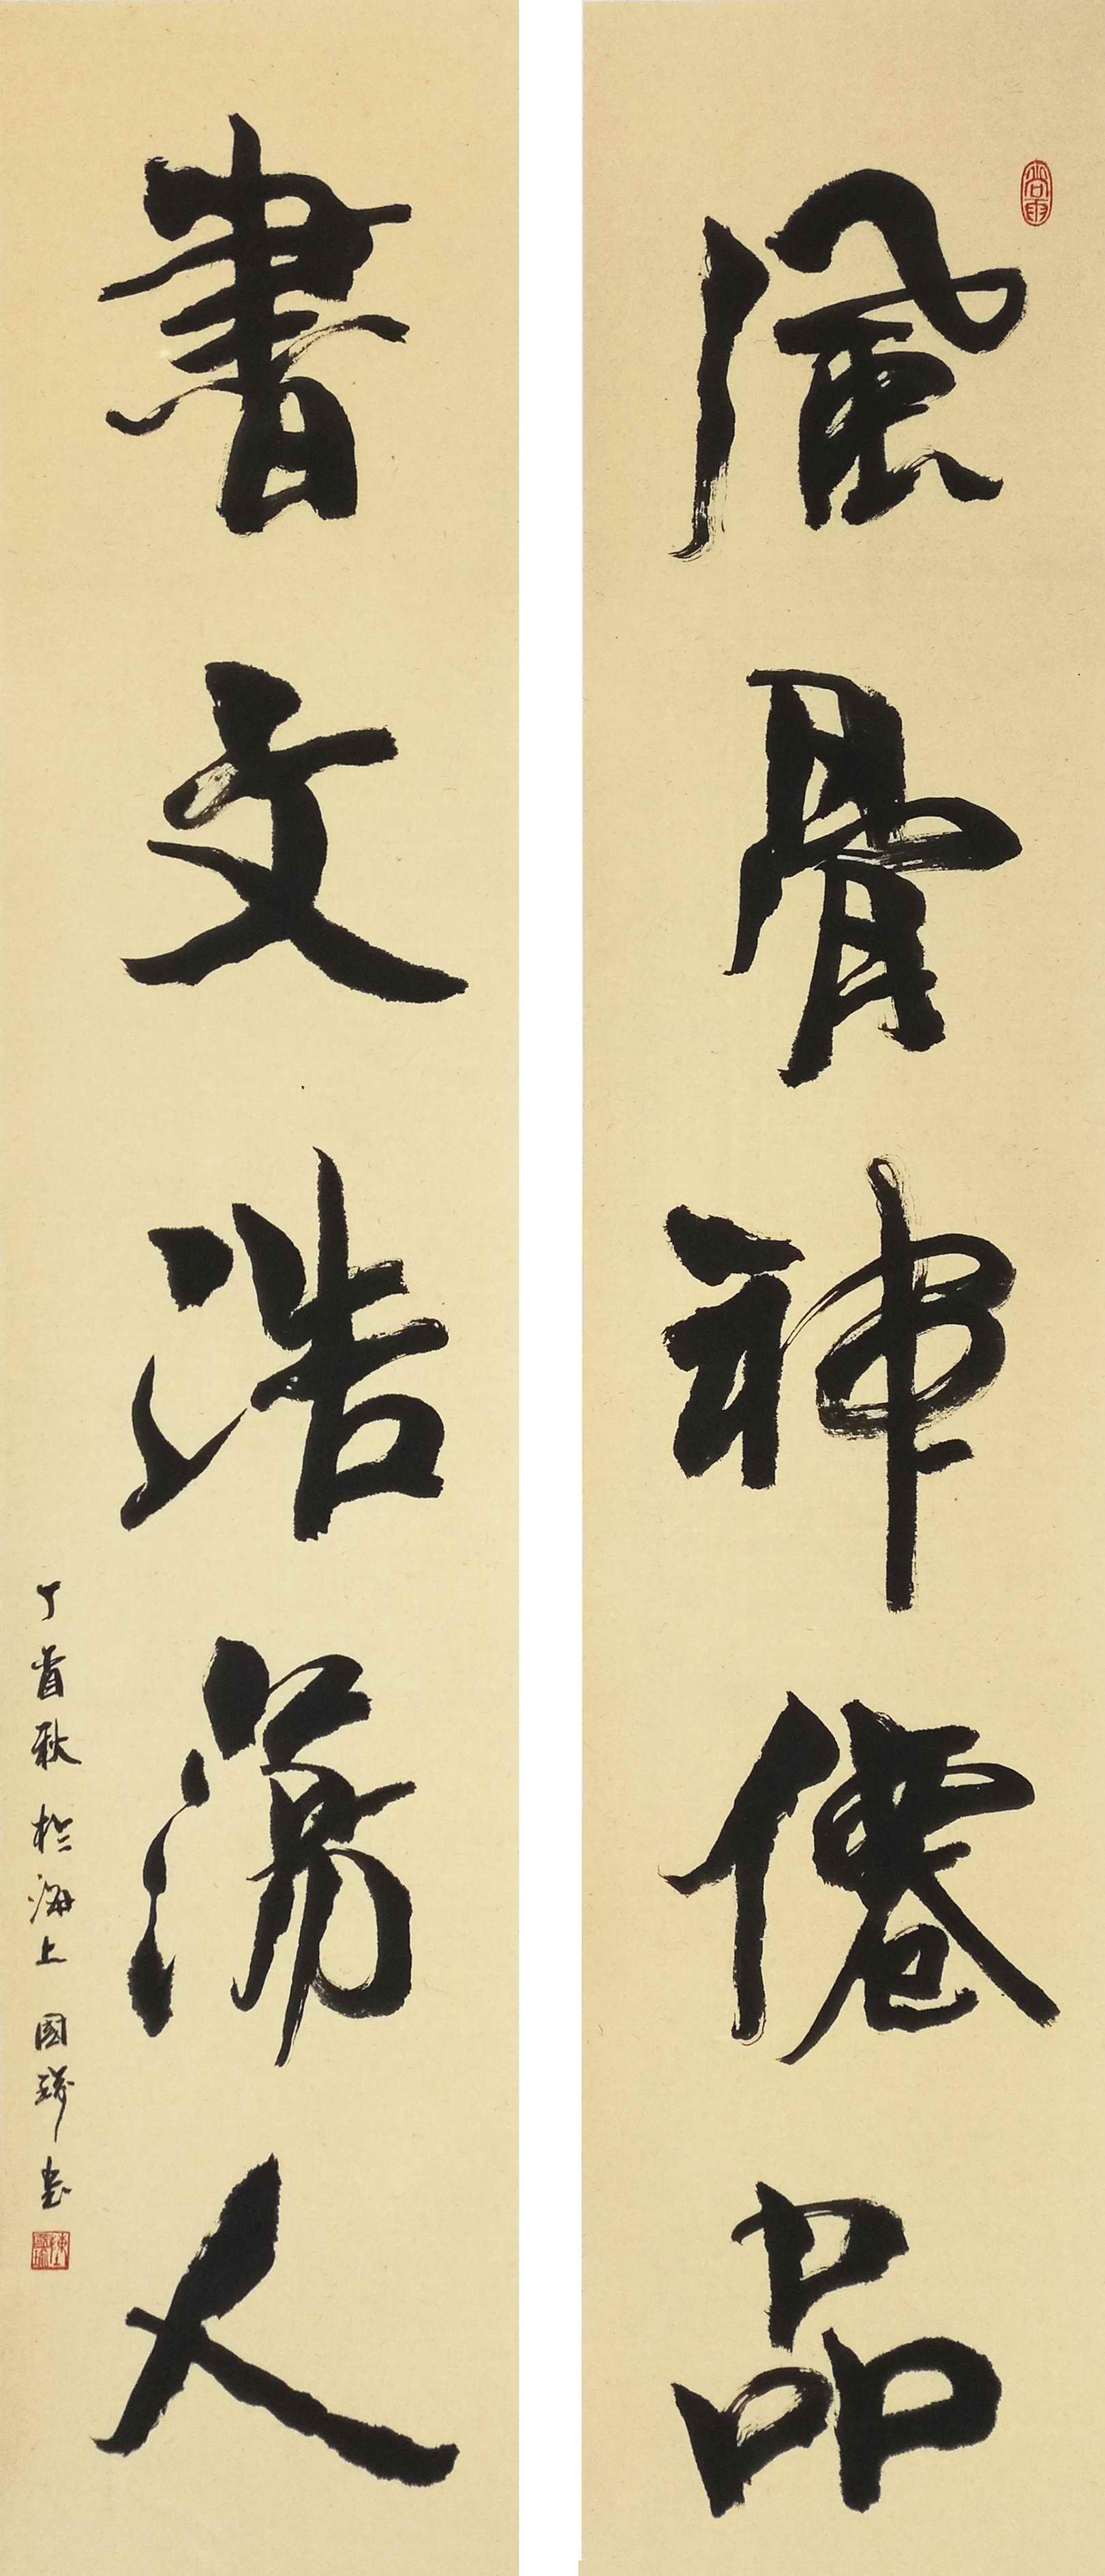 風骨神僊品
書文浩蕩人
丁酉秋於海上國書